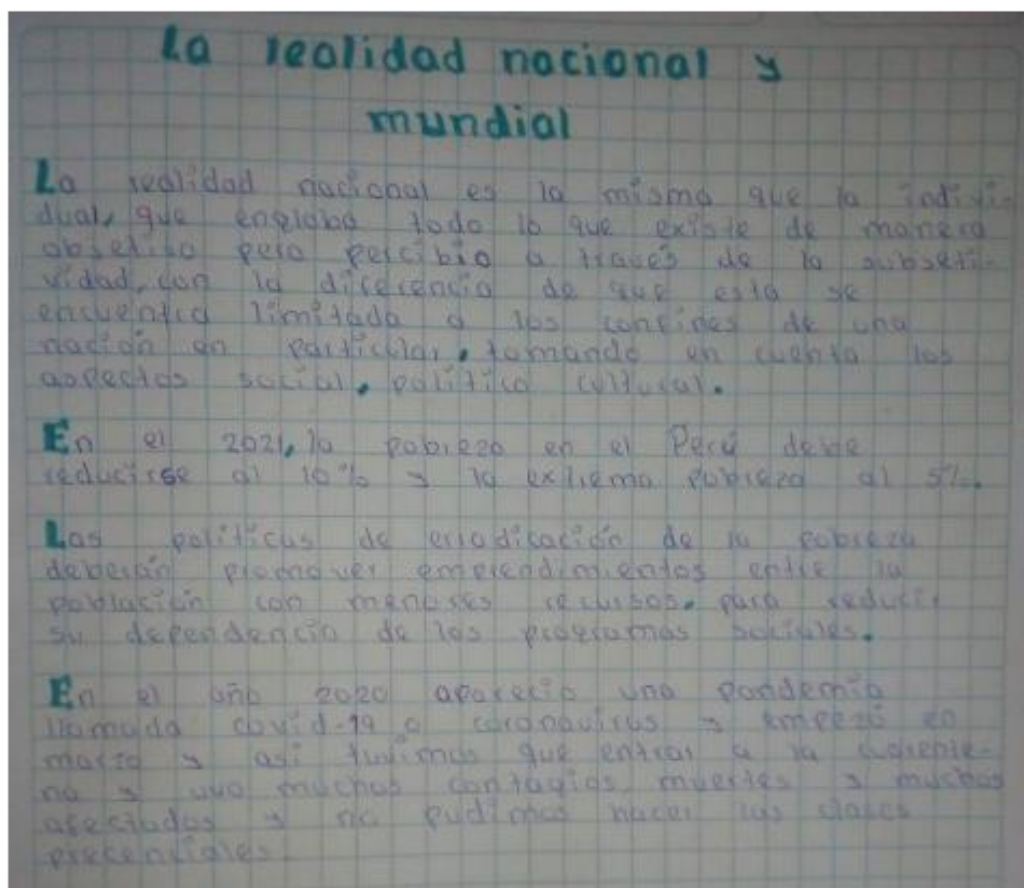 La realidad nacional y
mundial
La realidad nacional es la misma que la indivi-
dual, que engloba todo lo que existe de manera
obsetiva pero percibio a través de la subseti-
vidad, con la diferencia de que esta se
encuentra limitada a los confines de una
nación en particular, tomando en cuenta los
aspectos social, político cultural.
En el 2021, la pobreza en el Perú debe
reducirse al 10% y la extrema pobreza al 5%.
Las políticas de erradicación de la pobreza
deberán promover emprendimientos entre la
población con menores recursos, para reducir
su dependencia de los programas sociales.
En el año 2020 aparecio una pandemia
llamada covid-19 o coronavirus y empezó en
marzo y asi tuvimos que entrar a la cuarente-
na y uvo muchos contagios, muertes y muchos
afectados y no pudimos hacer las clases
precenciales